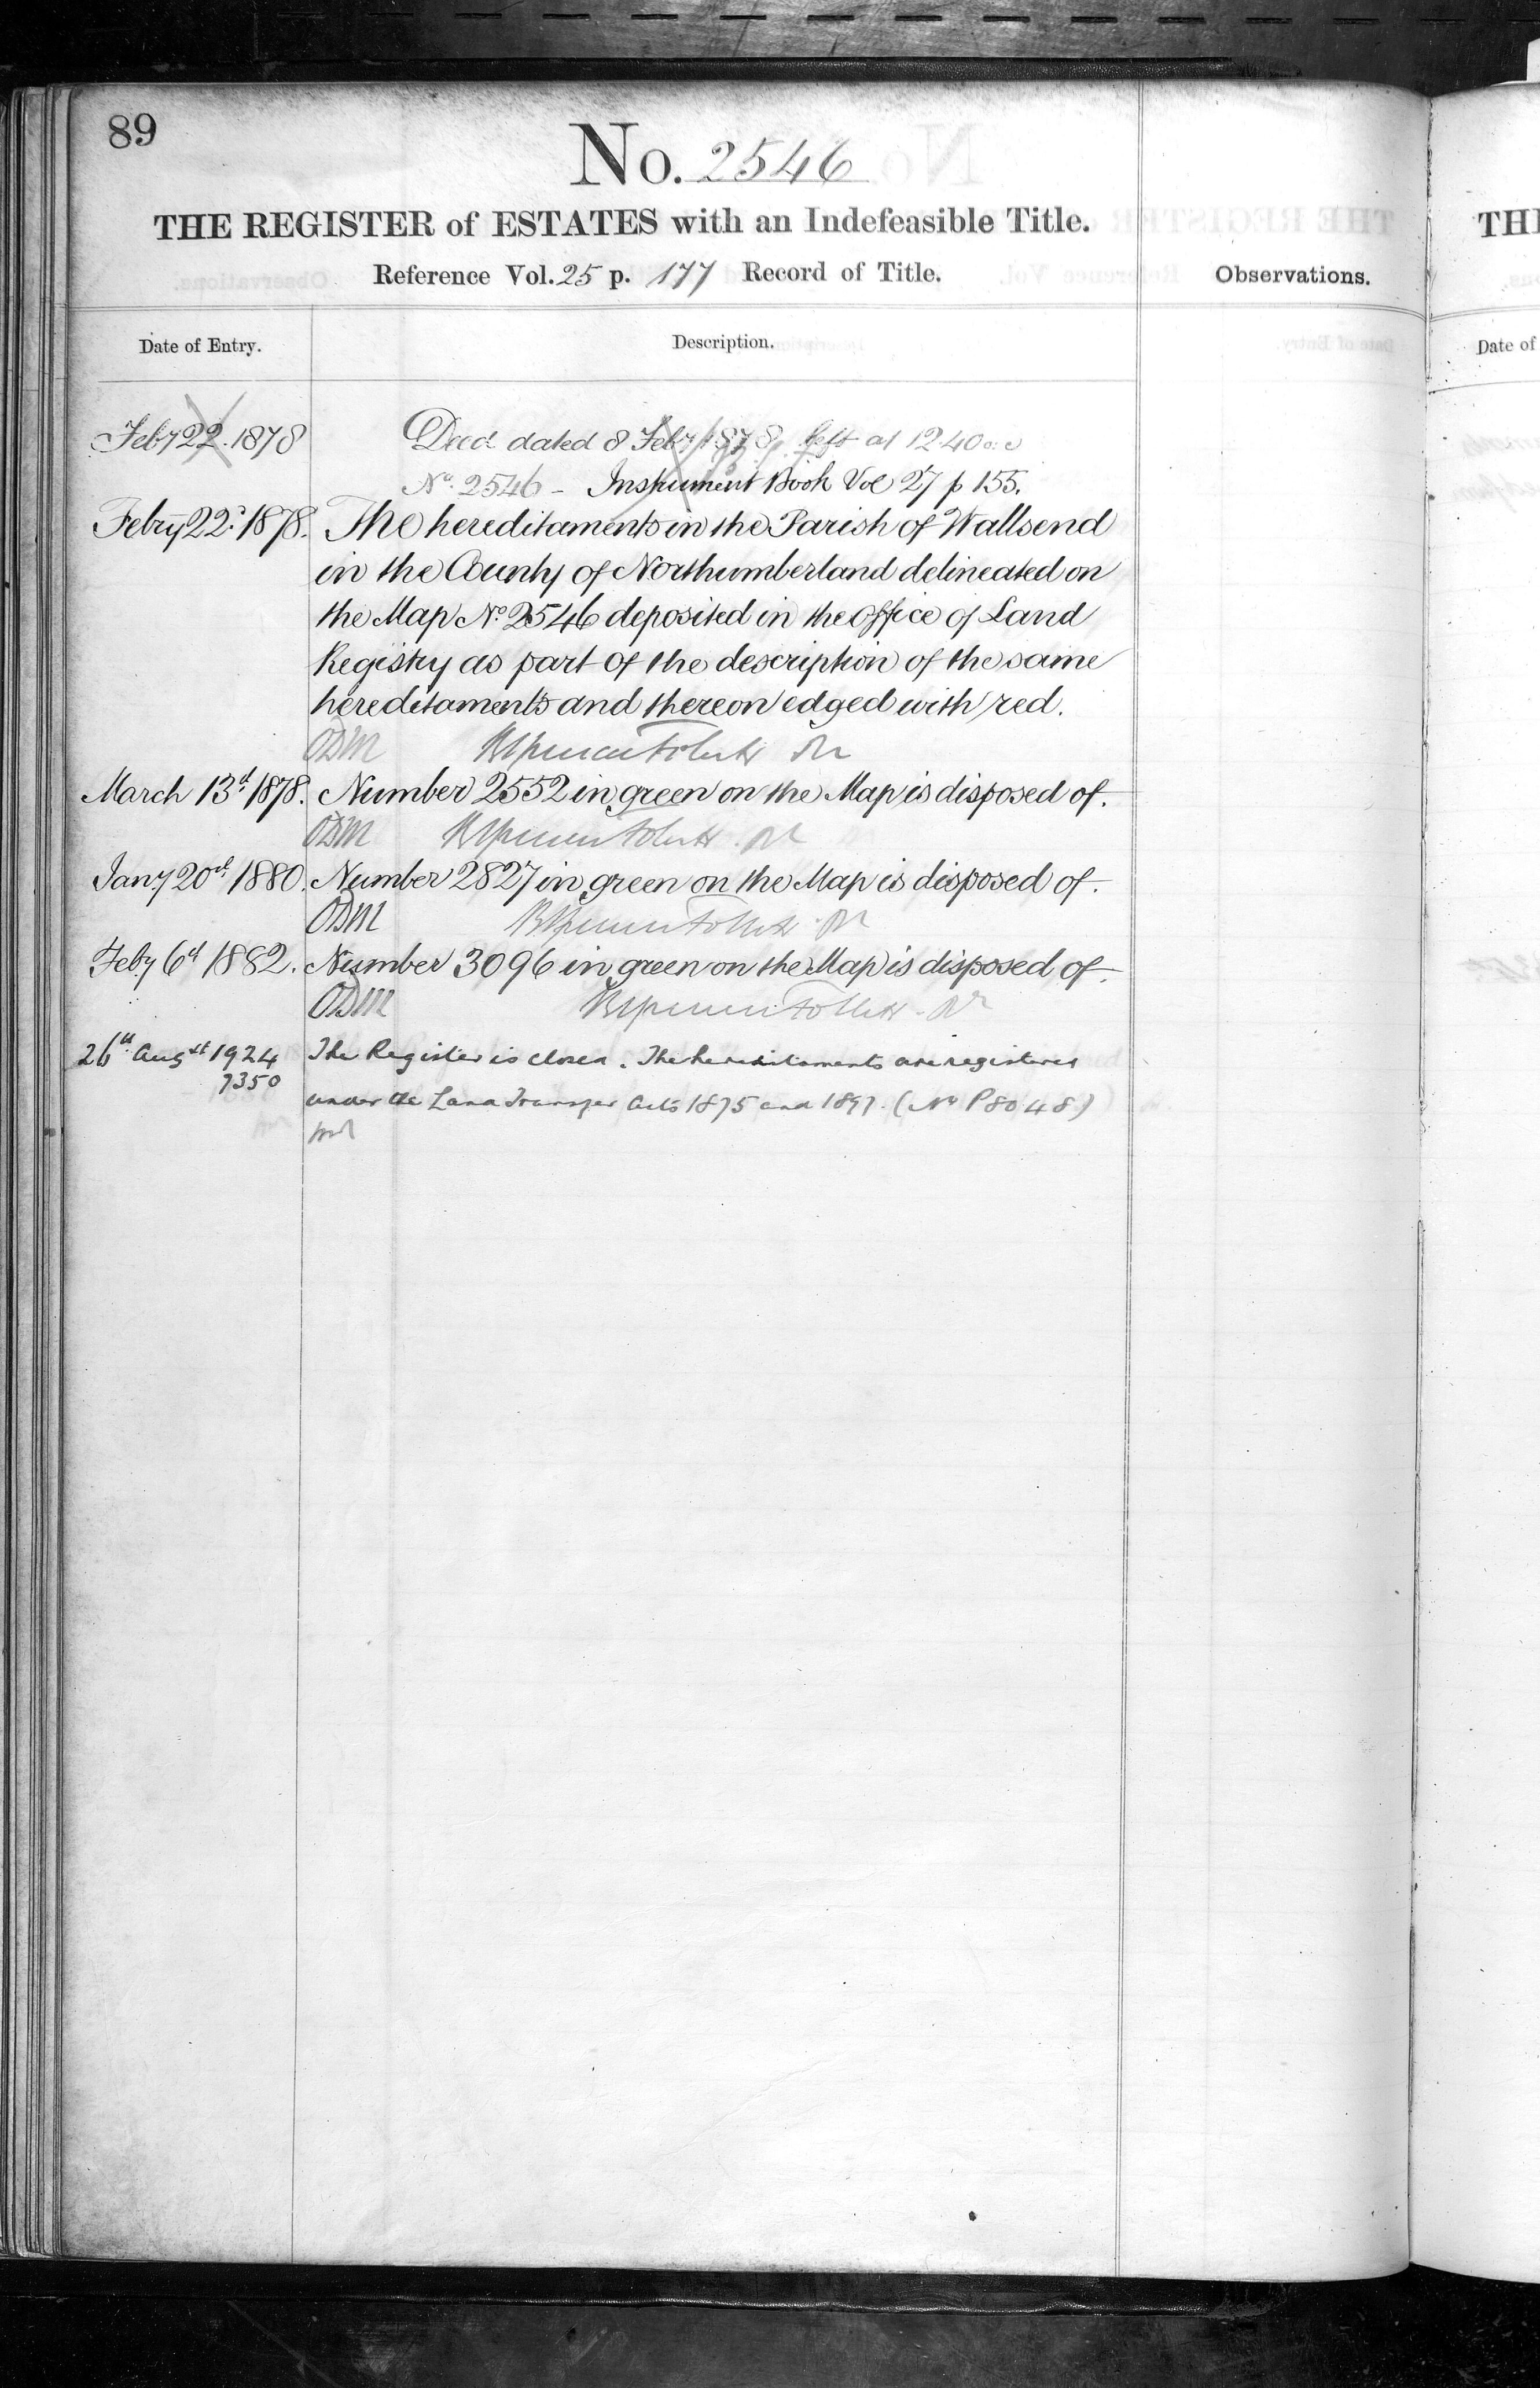 89
No. 2546
THE REGISTER of ESTATES with an Indefeasible Title.
Reference Vol. 25 p. 177 Record of Title.
Observations.
Date of Entry.
Description.
Feby 22. 1878
Deed dated 8 Feby 1878 left at 12.40
No. 2546 - Instrument Book Vol 27 p 155.
Febry 22d 1878. The hereditaments in the Parish of Wallsend
in the County of Northumberland delineated on
the Map No. 2546 deposited in the Office of Land
Registry as part of the description of the same
hereditaments and thereon edged with red.
ODM
March 13d 1878. Number 2552 in green on the Map is disposed of.
ODM
Jany 20d 1880. Number 2827 in green on the Map is disposed of.
ODM
Feby 6d 1882. Number 3096 in green on the Map is disposed of.
ODM
26th Augst 1924 The Register is closed. The hereditaments are registered
7350
under the Land Transfer Acts 1875 and 1897. (No P8048)
THE
Date of